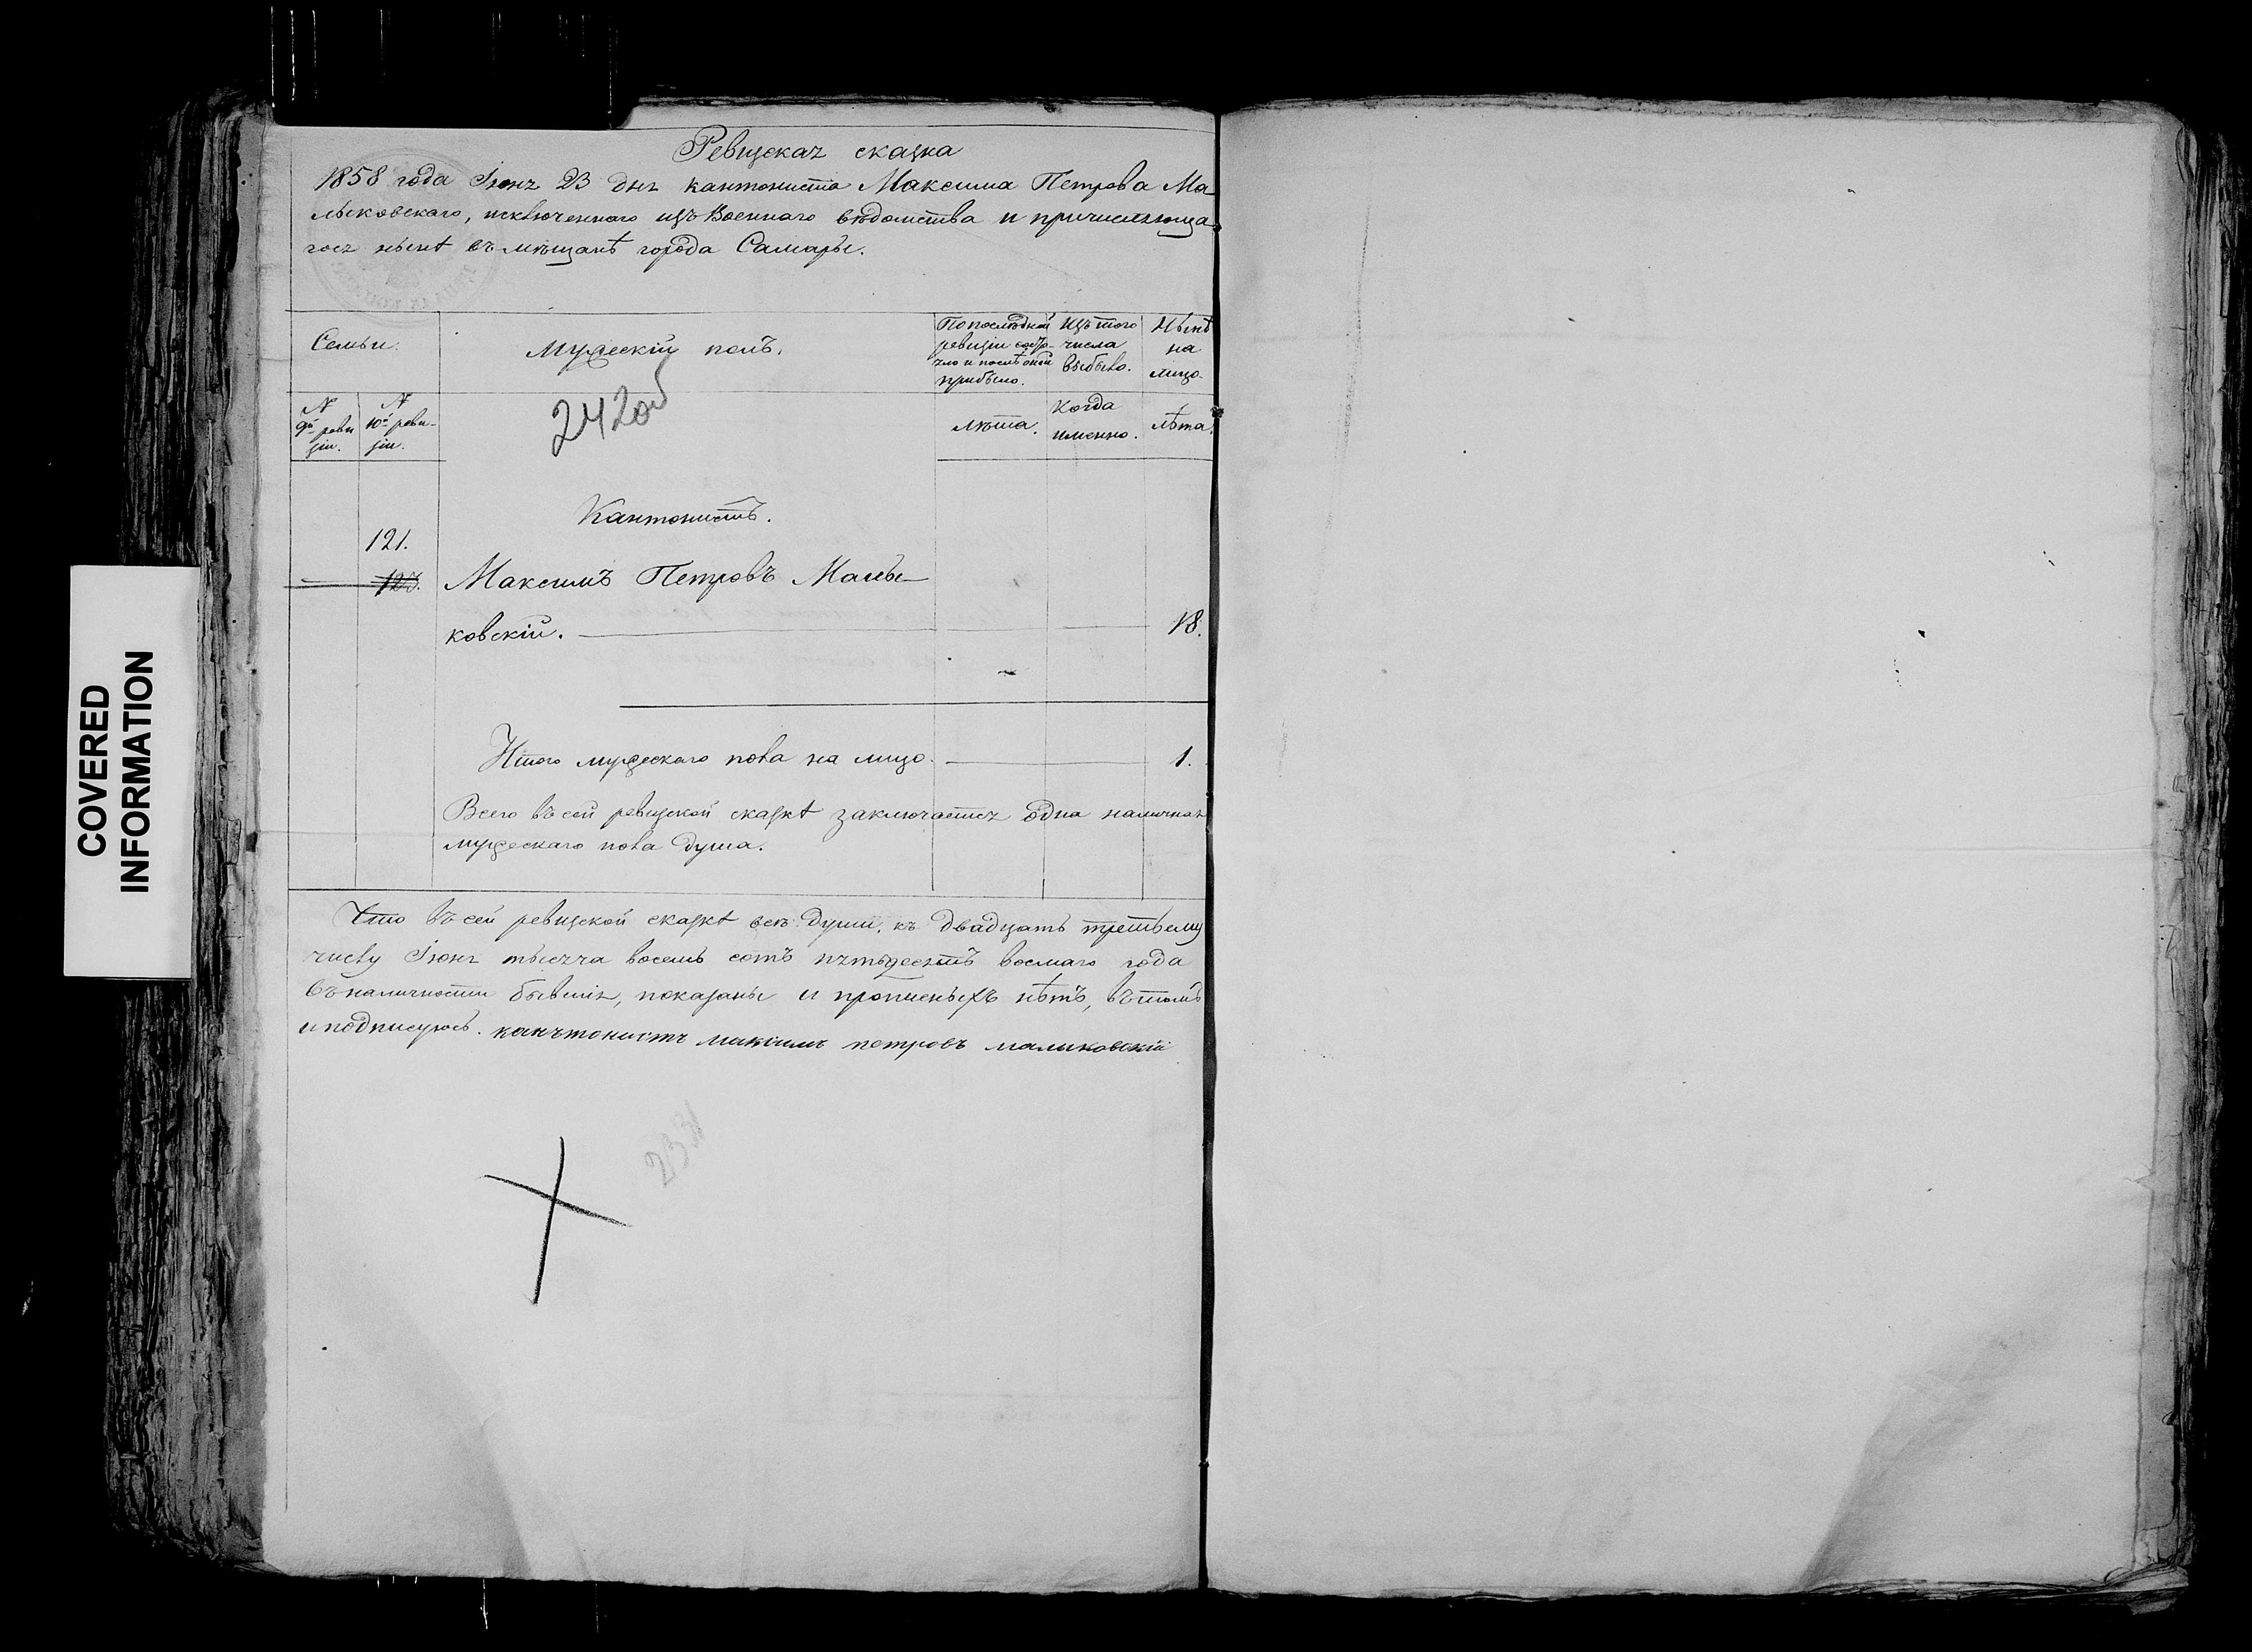 Ревизская сказка
1858 года Іюня 23 дня кантониста Максима Петрова Ма-
лыковскаго, исключеннаго изъ Военнаго вѣдомства и причисляюща-
гося нынѣ въ мѣщанѣ города Самары.
Семьи.
Мужескій полъ.
По последней
ревизіи состо-
яло и послѣ оной
прибыло.
Изъ того
числа
выбыло.
Нынѣ
на
лицо.
№
9й реви
зіи.
№
10й реви-
зіи.
2420
лѣта.
Когда
именно.
лѣта.
Кантонистъ.
121.
123. Максимъ Петровъ Малы-
ковскій. 18.
Итого мужескаго пола на лицо. 1.
Всего въ сей ревизской сказкѣ заключается одна наличная
мужескаго пола душа.
Что въ сей ревизской сказкѣ всѣ души, къ двадцать третьему
числу Іюня тысяча восемь сотъ пятьдесятъ восмаго года
въ наличности бывшія, показаны и прописныхъ нѣтъ, въ томъ
и подписуюсь. канътонистъ максимъ петровъ малыковскій
233
COVERED
INFORMATION